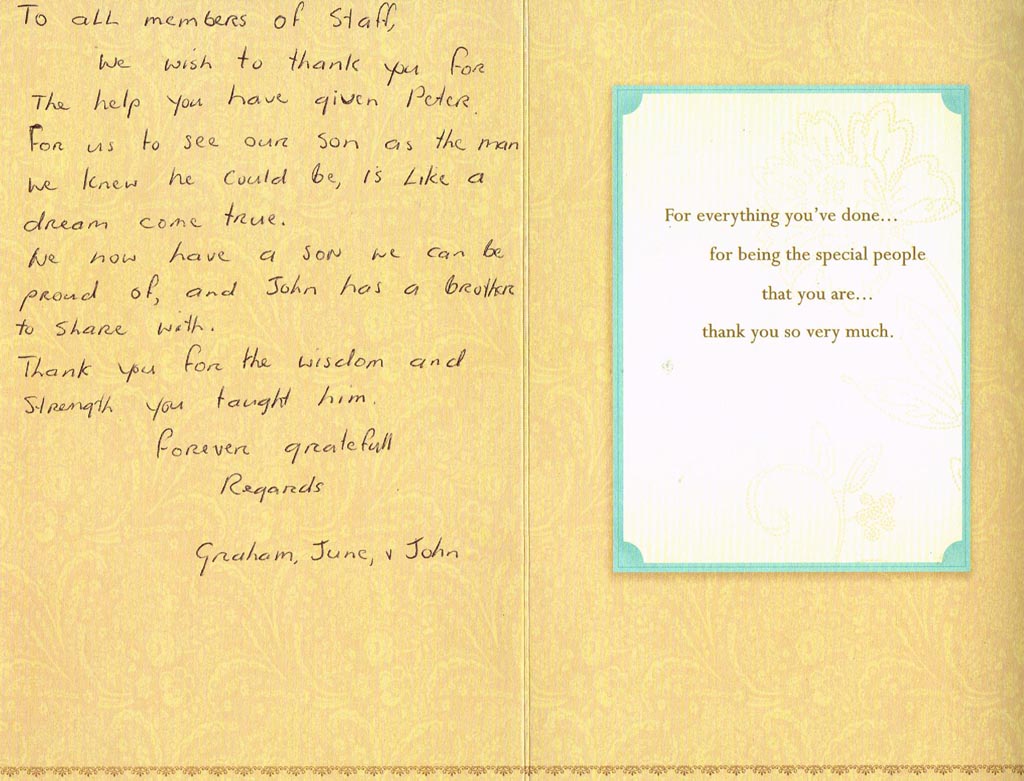 To all members of Staff,
We wish to thank you for
The help you have given Peter.
For us to see our son as the man
we knew he could be, is Like a
dream come true.
We now have a son we can be
proud of, and John has a brother
to share with.
Thank you for the wisdom and
Strength you taught him.
forever gratefull
Regards
Graham, June, & John
For everything you've done...
for being the special people
that you are...
thank you so very much.